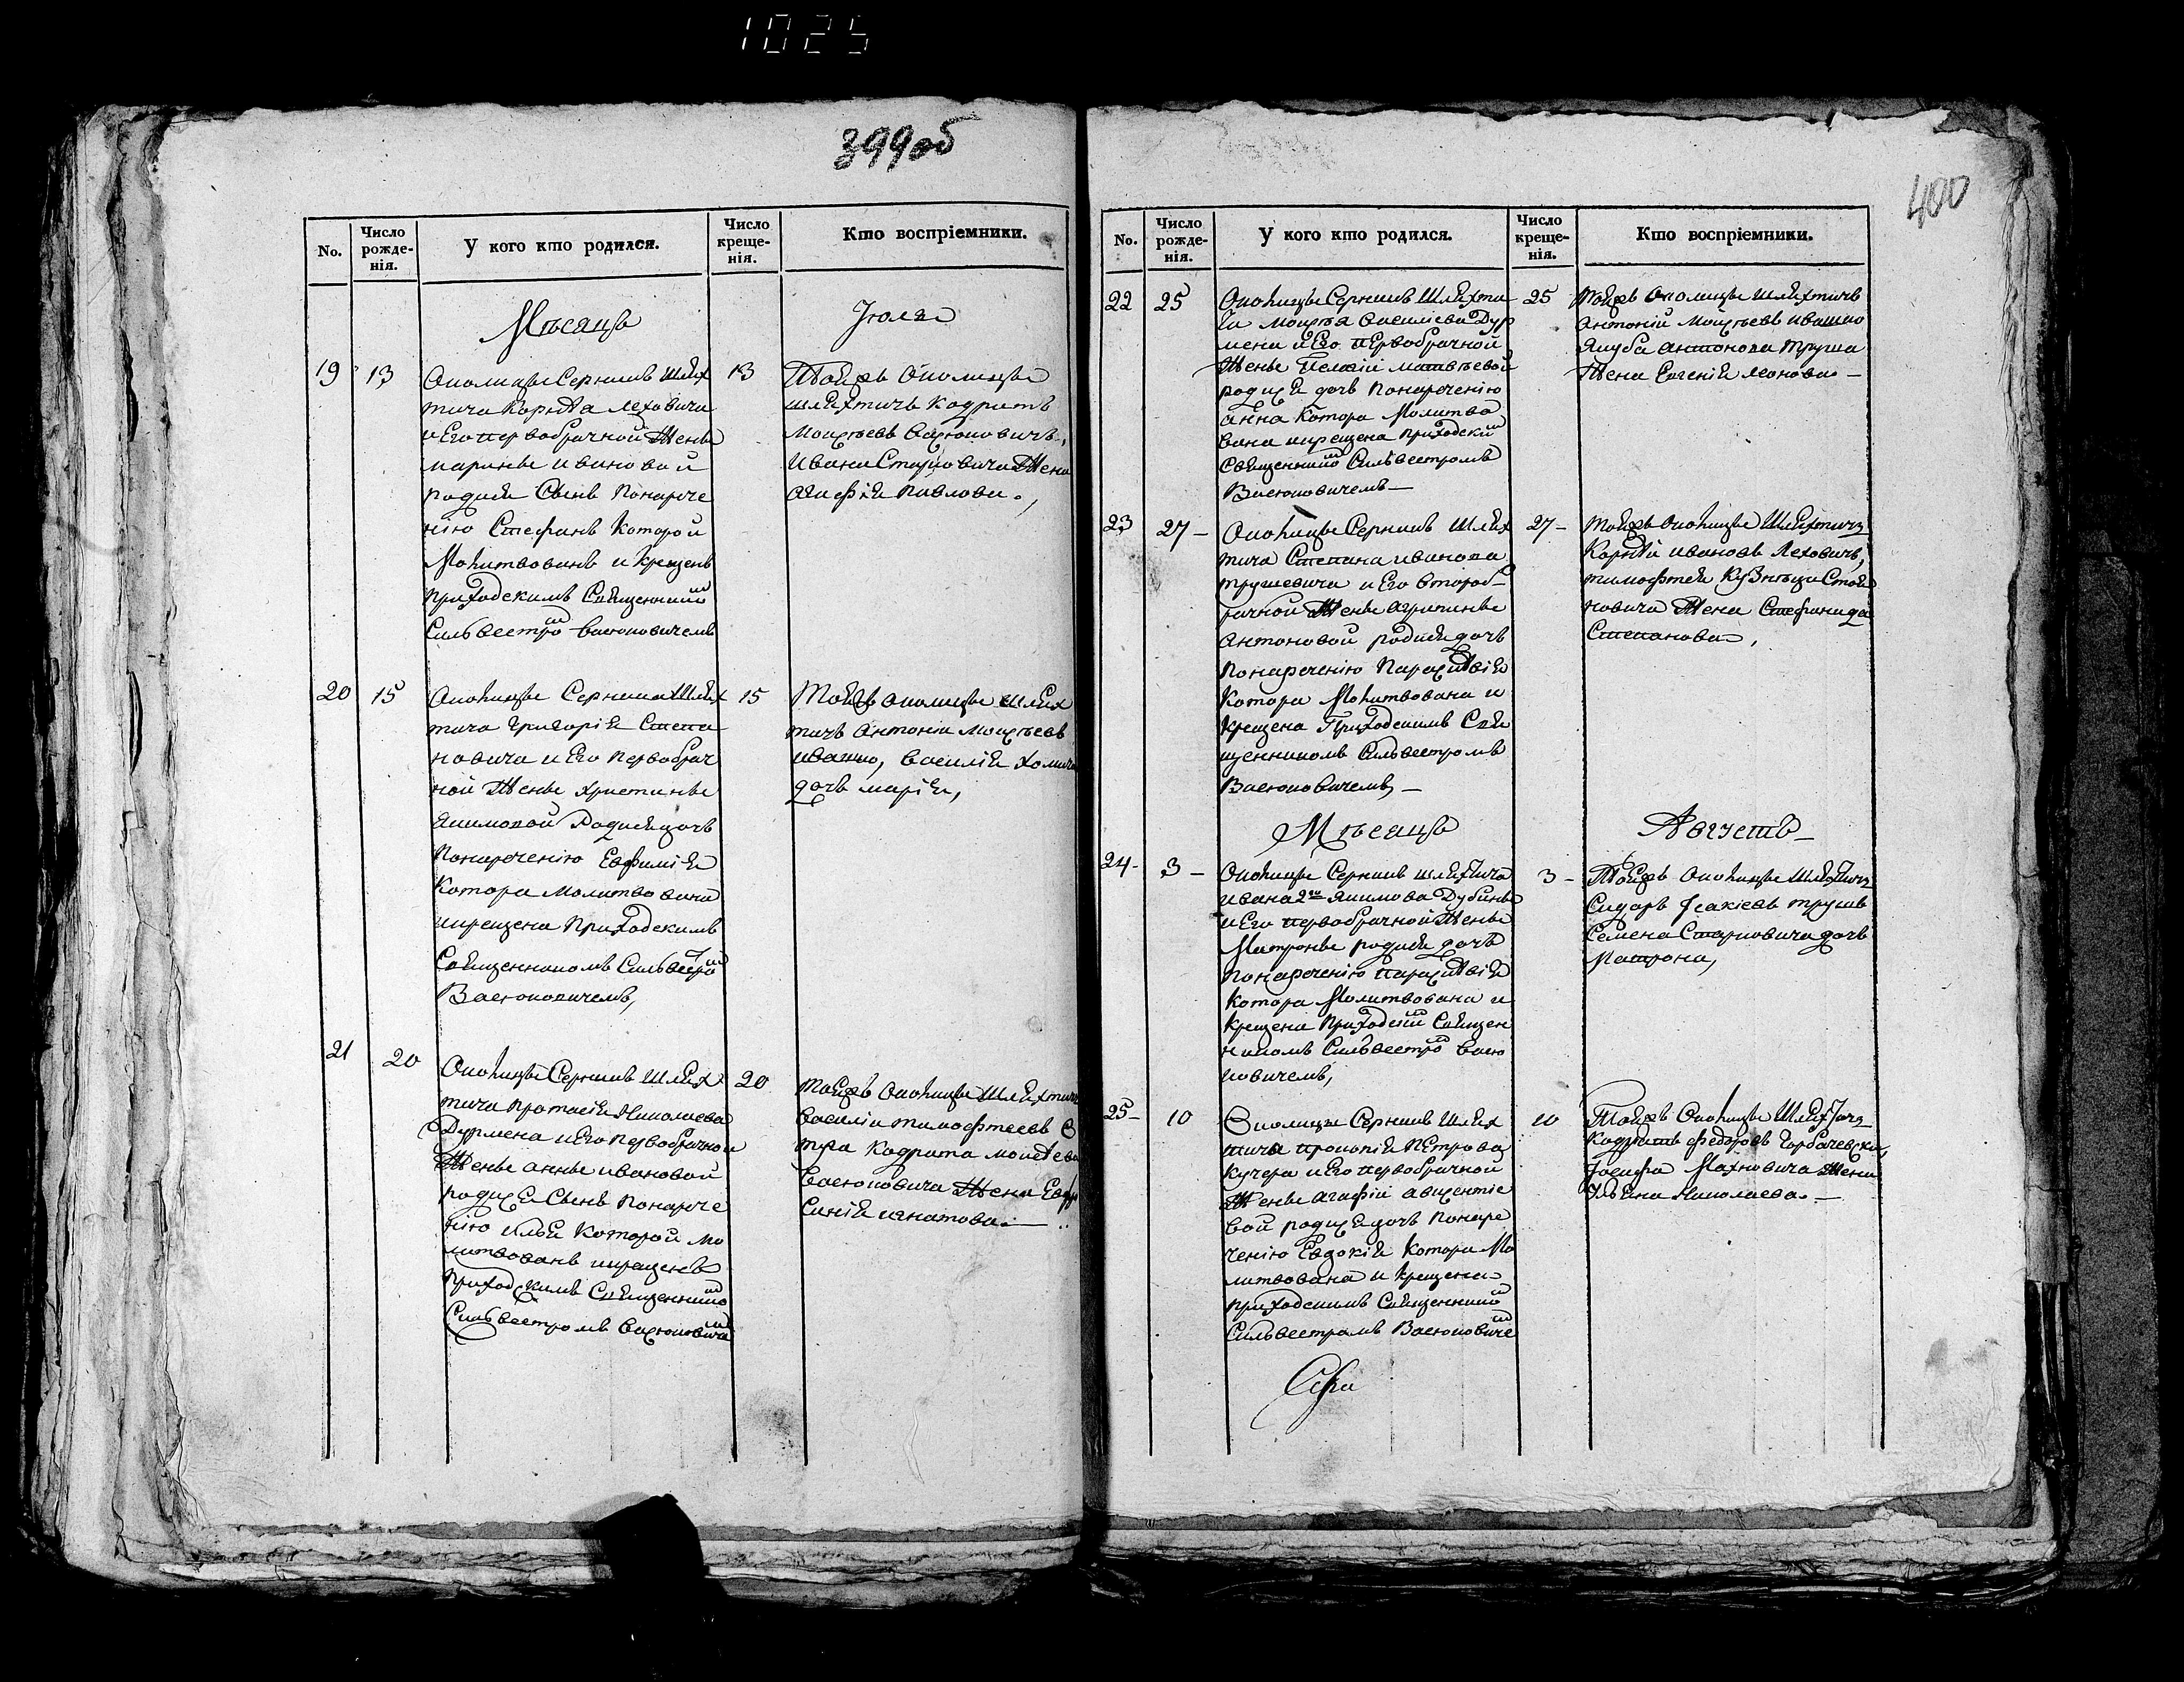 1025
399об
No.
Число рожде-нія.
У кого кто родился.
Число креще-нія.
Кто воспріемники.
Мѣсяцъ
Іюля
19 13
Околицы Серкишъ Шлях
тича Корнѣя Леховича
и Его первобрачной Жены
марины ивановой
родися Сынъ Понарече
нію Стефанъ Которой
Молитвованъ и крещенъ
приходскимъ Священнико
Сильвестро Васюковичемъ
13
Тойжъ Околицы
шляхтичъ кодратъ
Моисѣевъ Васюковичъ,
ивана Старовича Жена
агафія Павлова.,
20 15
Околицы Серкишъ Шлях
тича григорія Степа
новича и Его Первобрач
ной Жены христины
Якимовой Родися дочъ
Понареченію Евфимія
Котора молитвована
икрещена Приходскимъ
Священникомъ Сильвестро
Васюковичемъ,
15
Тойжъ околицы шлях
тичъ антоній моисѣевъ
ивашко, василія хомича
дочъ марія,
21 20
Околицы Серкишъ Шлях
тича протасія Николаева
Дурмена и Его Первобрачной
Жены анны ивановой
родися Сынъ Понарече
нію илья Которой мо
литвованъ икрещенъ
Приходскимъ Священнико
Сильвестромъ Васюковиче
20
тойжъ Околицы Шляхтичъ
василій тимофѣевъ
кодрата моисѣева
Васюковича Жена
игнатова.
400
No.
Число рожде-нія.
У кого кто родился.
Число креще-нія.
Кто воспріемники.
22 25
Околицы Серкишъ Шляхти
ча Моисѣя Дур
мена и Его первобрачной
Жены Пелагіи матвѣевой
родися дочъ Понареченію
анна Котора Молитво
вана икрещена приходски
Священнико Сильвестромъ
Васюковичемъ
25
Тойжъ околицы шляхтичъ
антоній Моисѣевъ ивашко
Якуба антонова труша
Жена Евгенія леонова
23 27
Околицы Серкишъ Шлях
тича Степана иванова
трушевича и Его второб-
рачной Жены агрипины
антоновой родися дочъ
понареченію Параскѣвія
котора Молитвована и
крещена Приходскимъ Свя
щенникомъ Сильвестромъ
Васюковичемъ,
27
тойжъ околицы Шляхтичъ
Корнѣй ивановъ Леховичъ,
тимофѣя
новича Жена Стефанида
Степанова,
Мѣсяцъ
Августъ
24 3
Околицы Серкишъ шляхтича
ивана 2го якимова Дубины
и Его первобрачной Жены
Матроны родися дочъ
понареченію параскѣвія
котора Молитвована и
крещена приходски Священ
никомъ Сильвестро Васю
ковичемъ,
3
Тойжъ Околицы Шляхтичъ
Сидоръ Ісакіевъ трушъ
Семена Старовича дочъ
Матрона,
25 10
Околицы Серкишъ Шлях
тича прокопія Петрова
кучера и Его первобрачной
Жены агафіи авксентіе
вой родися дочъ Понаре
ченію Евдокія Котора Мо
литвована и крещена
приходскимъ Священнико
Сильвестромъ Васюковиче
10
Тойжъ Околицы Шляхтичъ
кодратъ федоровъ Горбачевски,
Іосифа Махновича Жена
Николаева.